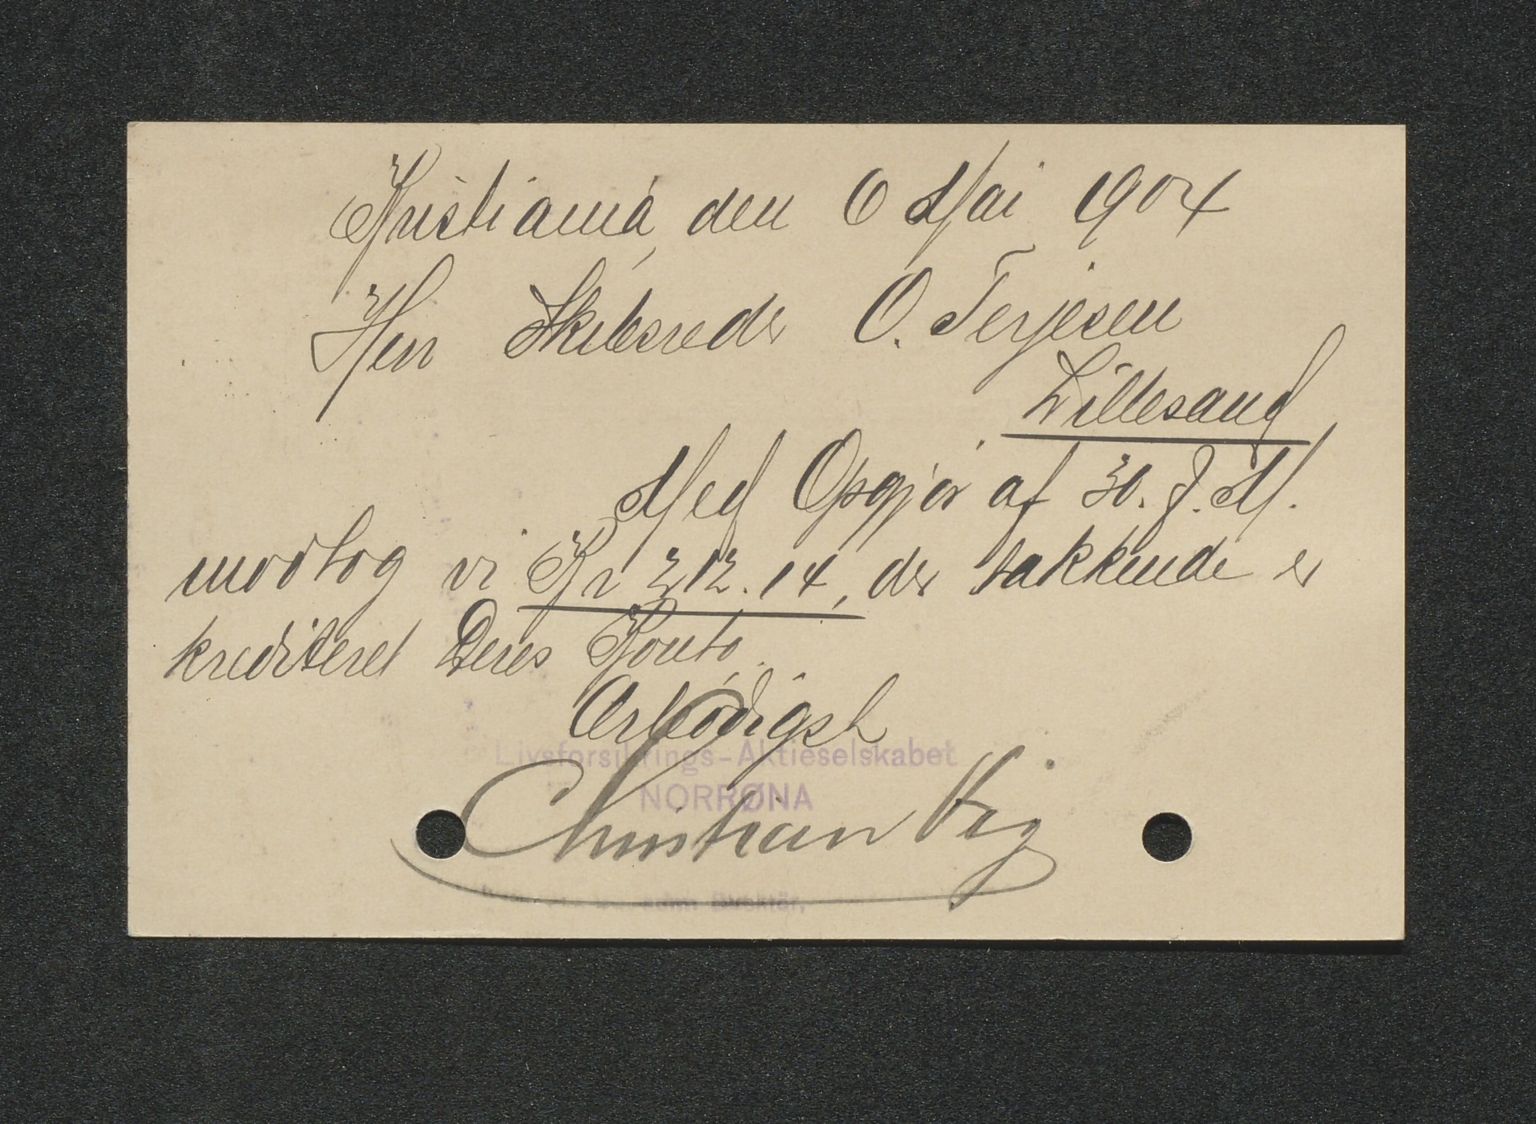 Kristiania den 6 Mai 1904
Herr Skibsreder O. Terjesen
Lillesand
Med Opgjør af 30. f. M.
modtog vi Kr 212.14, der takkende er
krediteret Deres Konto.
Ærbødigst
Livsforsikrings-Aktieselskabet
NORRØNA
Christian
adm. Direktør.